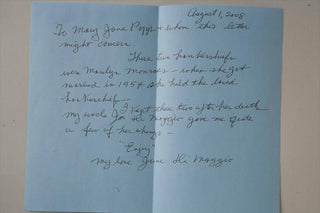 August 1, 2008
To Mary Jane Popp + whom this letter
might concern
These two hankerchiefs
were Marilyn Monroes - when she got
married in 1954 she held the lined
hankerchief.
I kept these two after her death
my uncle Joe Di Maggio gave me quite
a few of her things -
"Enjoy"
my love June Di Maggio